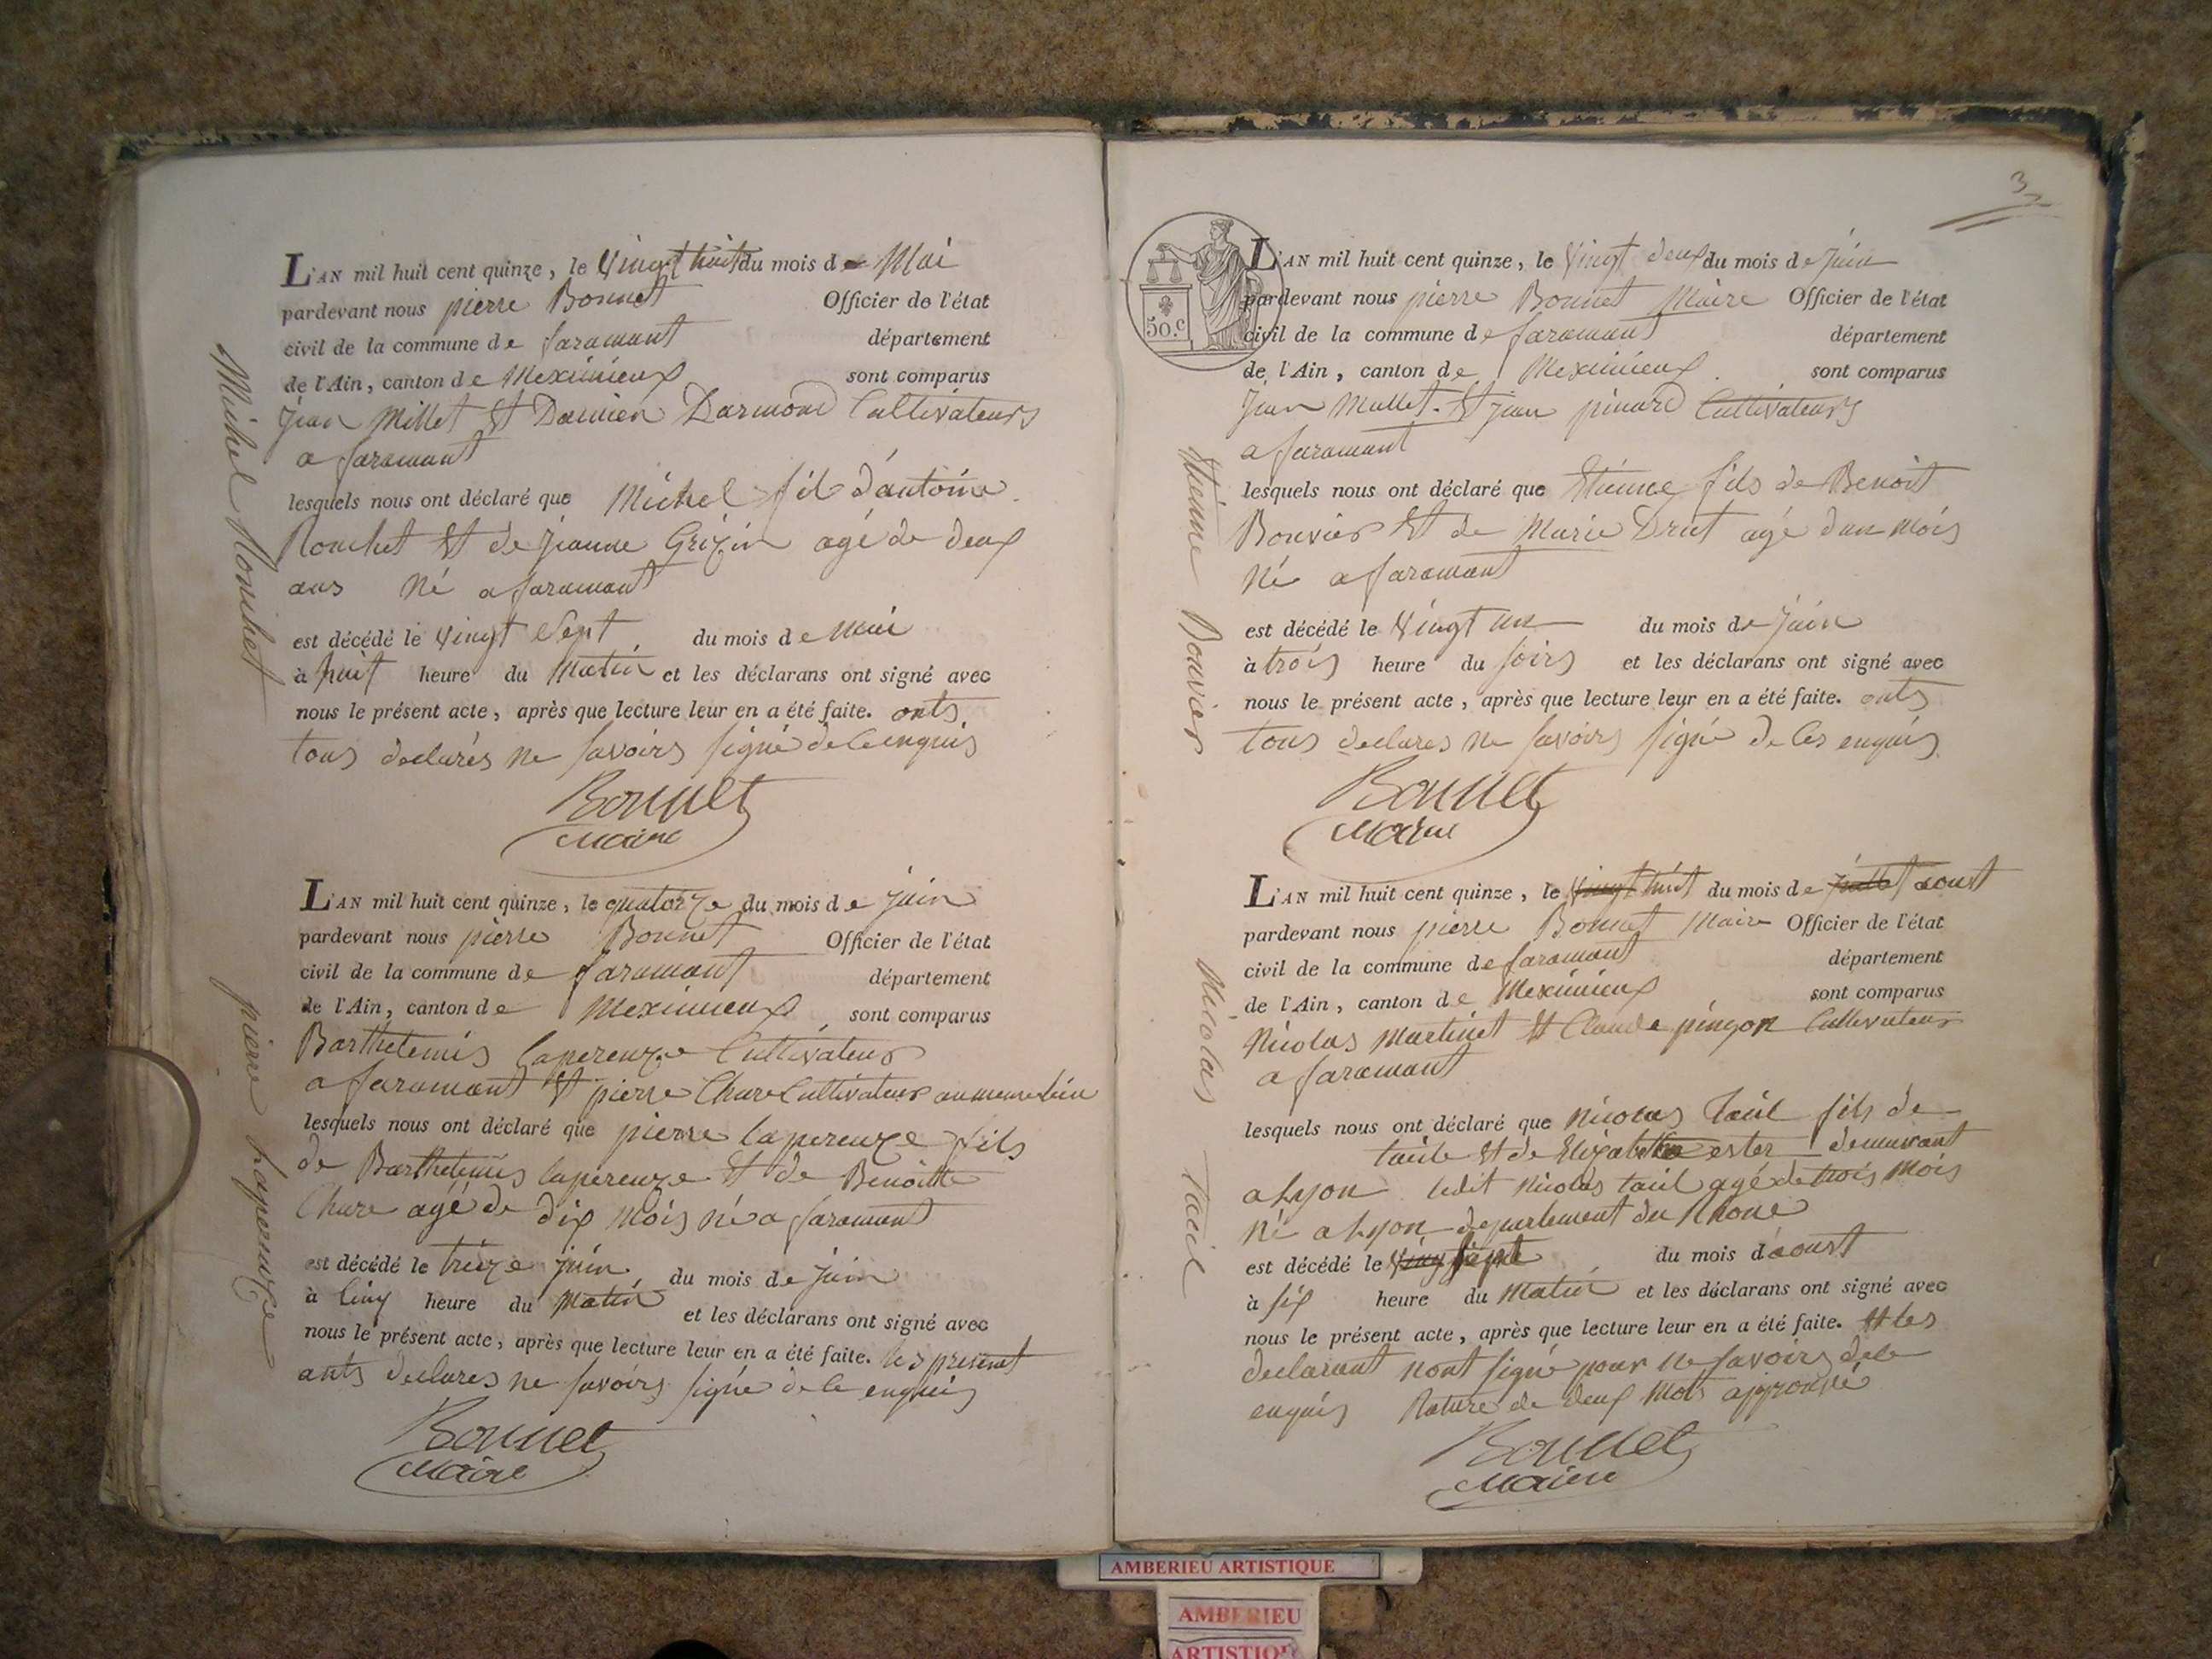 Michel Ronchet
L'AN mil huit cent quinze, le Vingt huit du mois de Mai
pardevant nous pierre Bonnet Officier de l'état
civil de la commune de faramant département
de l'Ain, canton de Meximieux sont comparus
Jean Millet Et Damien Darmond Cultivateurs
a faramant
lesquels nous ont déclaré que Michel fils d'antoine
Ronchet Et de Jeanne agé de deux
ans Né a faramant
est décédé le Vingt Sept du mois de Mai
à huit heure du Matin et les déclarans ont signé avec
nous le présent acte, après que lecture leur en a été faite. onts
tous declarés ne savoirs signé de ce enquis
Bonnet
Maire
pierre laperouze
L'AN mil huit cent quinze, le quatorze du mois de juin
pardevant nous pierre Bonnet Officier de l'état
civil de la commune de faramant département
de l'Ain, canton de Meximieux sont comparus
Barthelemis laperouze Cultivateur
a faramant Et pierre Chare Cultivateur au meme lieu
lesquels nous ont déclaré que pierre laperouze fils
de Barthelemis laperouze Et de Benoitte
Chare agé de dix Mois né a faramant
est décédé le treize juin du mois de juin
à Cinq heure du Matin et les déclarans ont signé avec
nous le présent acte, après que lecture leur en a été faite. les presènt
onts declares ne savoirs signé de ce enquis
Bonnet
Maire
3
50.c
Etienne Bouvier
L'AN mil huit cent quinze, le Vingt deux du mois de juin
pardevant nous pierre Bonnet Maire Officier de l'état
civil de la commune de faramant département
de l'Ain, canton de Meximieux sont comparus
Jean Mallet Et jean pinard Cultivateurs
a faramant
lesquels nous ont déclaré que Etienne fils de Benoit
Bouvier Et de Marie Drut agé dun Mois
Né a faramant
est décédé le Vingt un du mois de juin
à trois heure du soirs et les déclarans ont signé avec
nous le présent acte, après que lecture leur en a été faite. onts
tous declares ne savoirs signé de ces enquis
Bonnet
Maire
Nicolas Tail
L'AN mil huit cent quinze, le Vingt huit du mois de juillet aoust
pardevant nous pierre Bonnet Maire Officier de l'état
civil de la commune de faramant département
de l'Ain, canton de Meximieux sont comparus
Nicolas Martinet Et Claude pingon Cultivateur
a faramant
lesquels nous ont déclaré que Nicolas Tail fils de
taile Et de ester demurant
a Lyon ledit Nicolas tail agé de trois Mois
Né a Lyon departement du Rhone
est décédé le Ving sept du mois d'aoust
à six heure du Matin et les déclarans ont signé avec
nous le présent acte, après que lecture leur en a été faite. Et les
declarant nont signé pour ne savoirs de ce
enquis Rature de deux Mots approuvé
Bonnet
Maire
AMBERIEU ARTISTIQUE
AMBERIEU
ARTISTIQUE